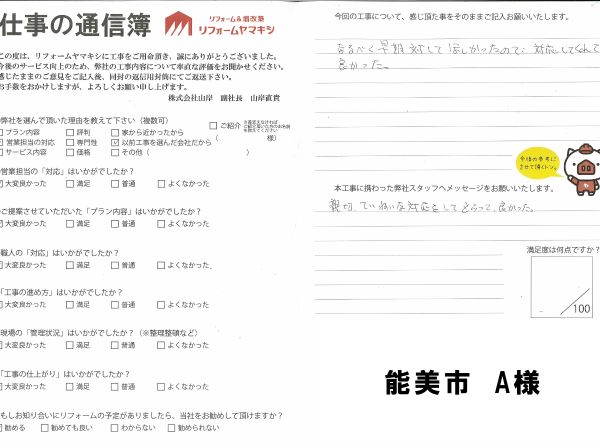 仕事の通信簿
リフォーム&増改築
リフォームヤマキシ
この度は、リフォームヤマキシに工事をご用命頂き、誠にありがとうございました。
今後のサービス向上のため、弊社の工事内容について率直な評価をお聞かせください。
感じたままのご意見をご記入後、同封の返信用封筒にてご返送下さい。
お手数をおかけしますが、よろしくお願い申し上げます。
株式会社山岸 副社長 山岸直貴
弊社を選んで頂いた理由を教えて下さい（複数可）
プラン内容 □評判 □家から近かったから
営業担当の対応 □専門性 ☑以前工事を選んだ会社だから
サービス内容 □価格 □その他（ ）
□ご紹介
（ 様）
営業担当の「対応」はいかがでしたか？
大変良かった □満足 □普通 □よくなかった
ご提案させていただいた「プラン内容」はいかがでしたか？
大変良かった □満足 □普通 □よくなかった
職人の「対応」はいかがでしたか？
大変良かった □満足 □普通 □よくなかった
「工事の進め方」はいかがでしたか？
大変良かった □満足 □普通 □よくなかった
現場の「管理状況」はいかがでしたか？（※整理整頓など）
大変良かった □満足 □普通 □よくなかった
「工事の仕上がり」はいかがでしたか？
大変良かった □満足 □普通 □よくなかった
もしお知り合いにリフォームの予定がありましたら、当社をお勧めして頂けますか？
勧める □勧めても良い □わからない □勧められない
今回の工事について、感じ頂た事をそのままご記入お願いいたします。
なるべく早期対して ほしかったので、対応してくれて
良かった。
今後の参考に
させて頂くトン。
本工事に携わった弊社スタッフへメッセージをお願いいたします。
親切、ていねいな対応をしてもらって、良かった。
満足度は何点ですか？
100
能美市 A様